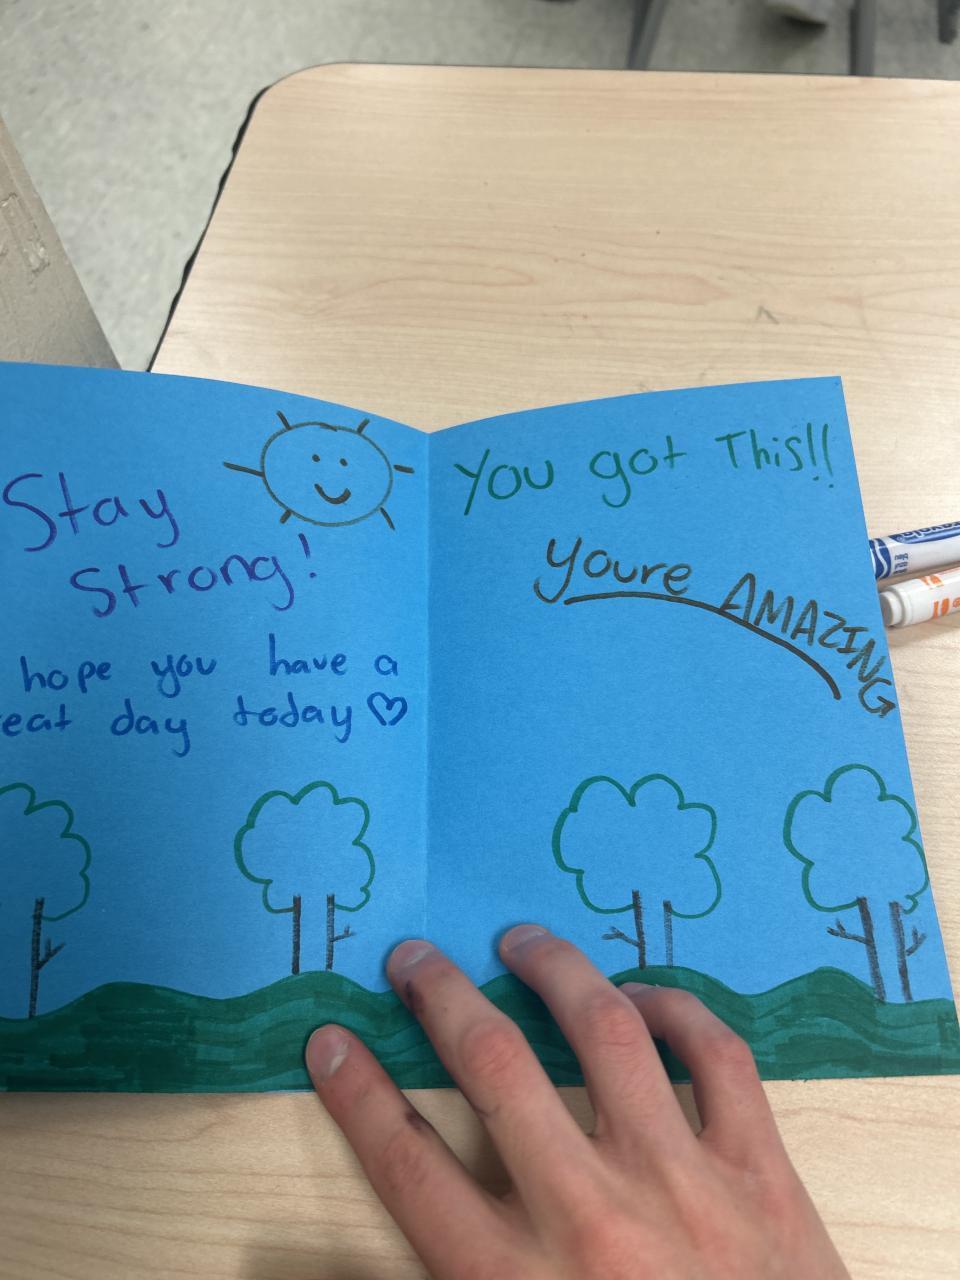 Stay
Strong!
hope you have a
eat day today
You got This!!
youre AMAZING